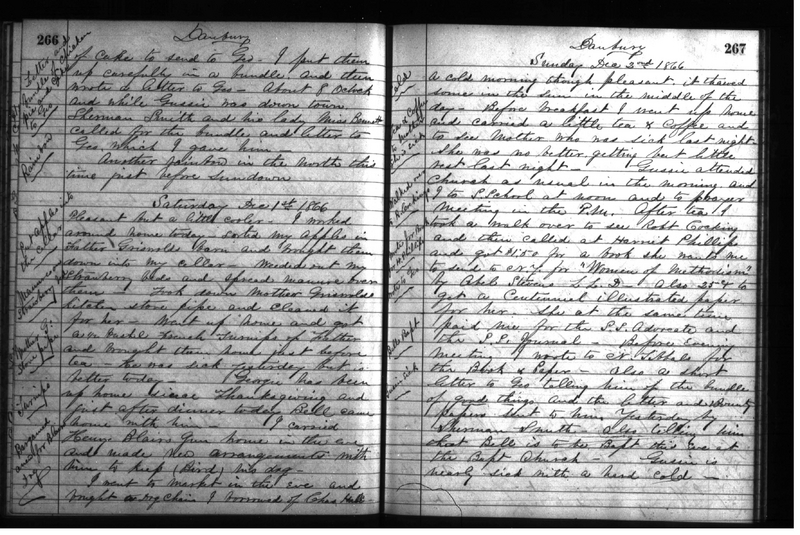 266
Danbury
of cake to send to Geo - I put them
up carefully in a bundle and then
wrote a letter to Geo - About 8 Oclock
and while Gussie was down town
Sherman Smith and his lady Miss
called for the bundle and letter to
Geo, which I gave him -
Another rainbow in the North this
time just before sundown
Saturday Dec 1st 1866
Pleasant but a little cooler - I worked
around home today - sorted my apples in
Father Griswolds barn and brought them
down into my cellar - Weeded out my
Strawberry beds and spread manure over
them - Took down Mother Griswolds
kitchen stove pipe and cleaned it
for her - Went up home and got
a bushel French Turnips of Father
and brought them home just before
tea - was sick yesterday but is
better today - Georgie has been
up home since Thanksgiving and
first after dinner today Bell came
home with him I carried
Henry Blairs Gun home in the eve
and made new arrangements with
him to keep (Bird) his dog -
I went to market in the eve and
bought a dog chain I borrowed of Chas Hull -
Rainbow
the cellar
Strawberry
Stove pipe
Turnips
267
Danbury
Sunday Dec 2nd 1866
A cold morning though pleasant. it thawed
some in the sun in the middle of the
day - Before breakfast I went up home
and carried a little tea & Coffee and
to see Mother who was sick last night
She was no better getting but little
rest last night - Gussie attended
Church as usual in the morning and
I to S. School at noon and to prayer
Meeting in the P.M. After tea I
took a walk over to see Robt Cocking
and then called at Harriet Phillips
and got $1.50 for a book she wants me
to send to N.Y. for "Women of Methodism"
by Abel Stevens L.L.D - Also 25 cts to
get a Centennial illustrated paper
for her - She at the same time
paid me for the S.S. Advocate and
the S.S. Journal - Before Evening
Meeting I wrote to for
the Book & Paper - Also a short
letter to Geo telling him of the bundle
of good things and the letter and
papers sent to him yesterday by
Sherman Smith - Also telling him
that Bell is to be Bapt this Eve at
the Bapt Church - Gussie is
nearly sick with a hard cold -
Cold
Belle Bapt
Gussie sick